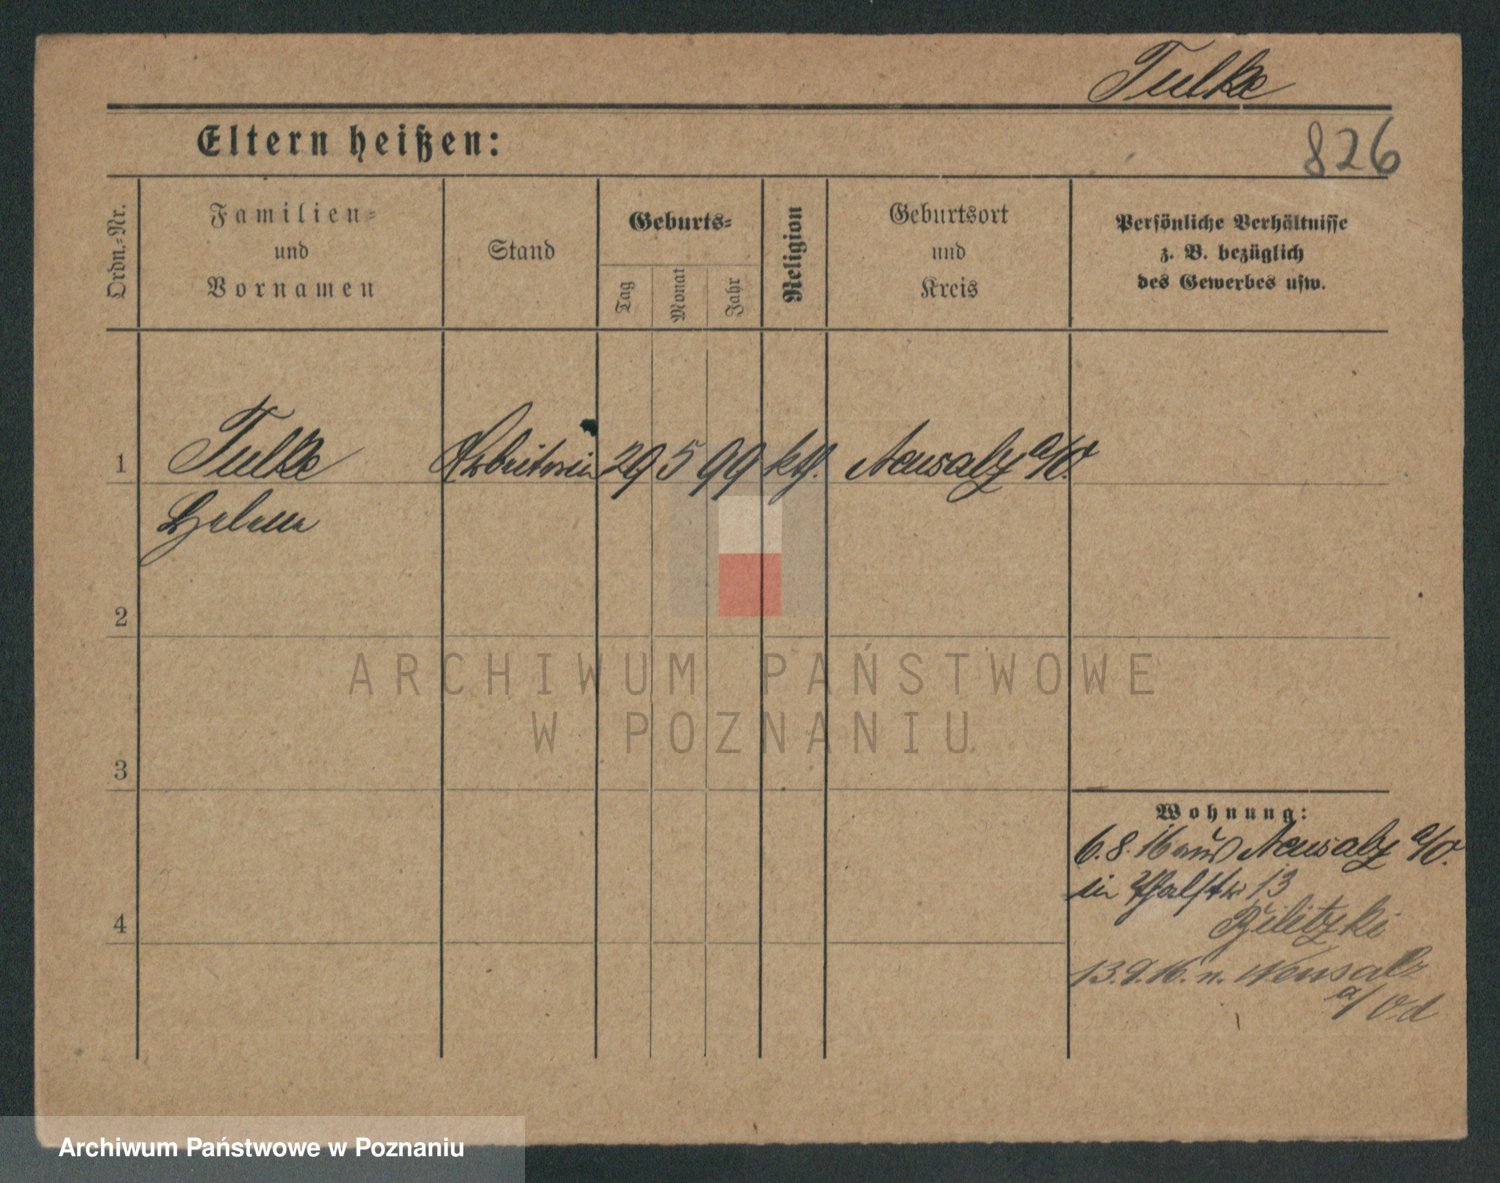 Tulke
Eltern heißen:
826
Ordn.-Nr.
Familien-
und
Vornamen
Stand
Geburts-
Tag
Monat
Jahr
Religion
Geburtsort
und
Kreis
Persönliche Verhältnisse
z. B. bezüglich
des Gewerbes usw.
1 Tulke Arbeiterin 29 5 99 kth. Neusalz a/O.
Helene
2
ARCHIWUM PAŃSTWOWE
W POZNANIU
3
Wohnung:
6.8.16 aus Neusalz a/O.
in 13
4
Bilitzki
13.9.16. n. Neusalz
a/Od
Archiwum Państwowe w Poznaniu